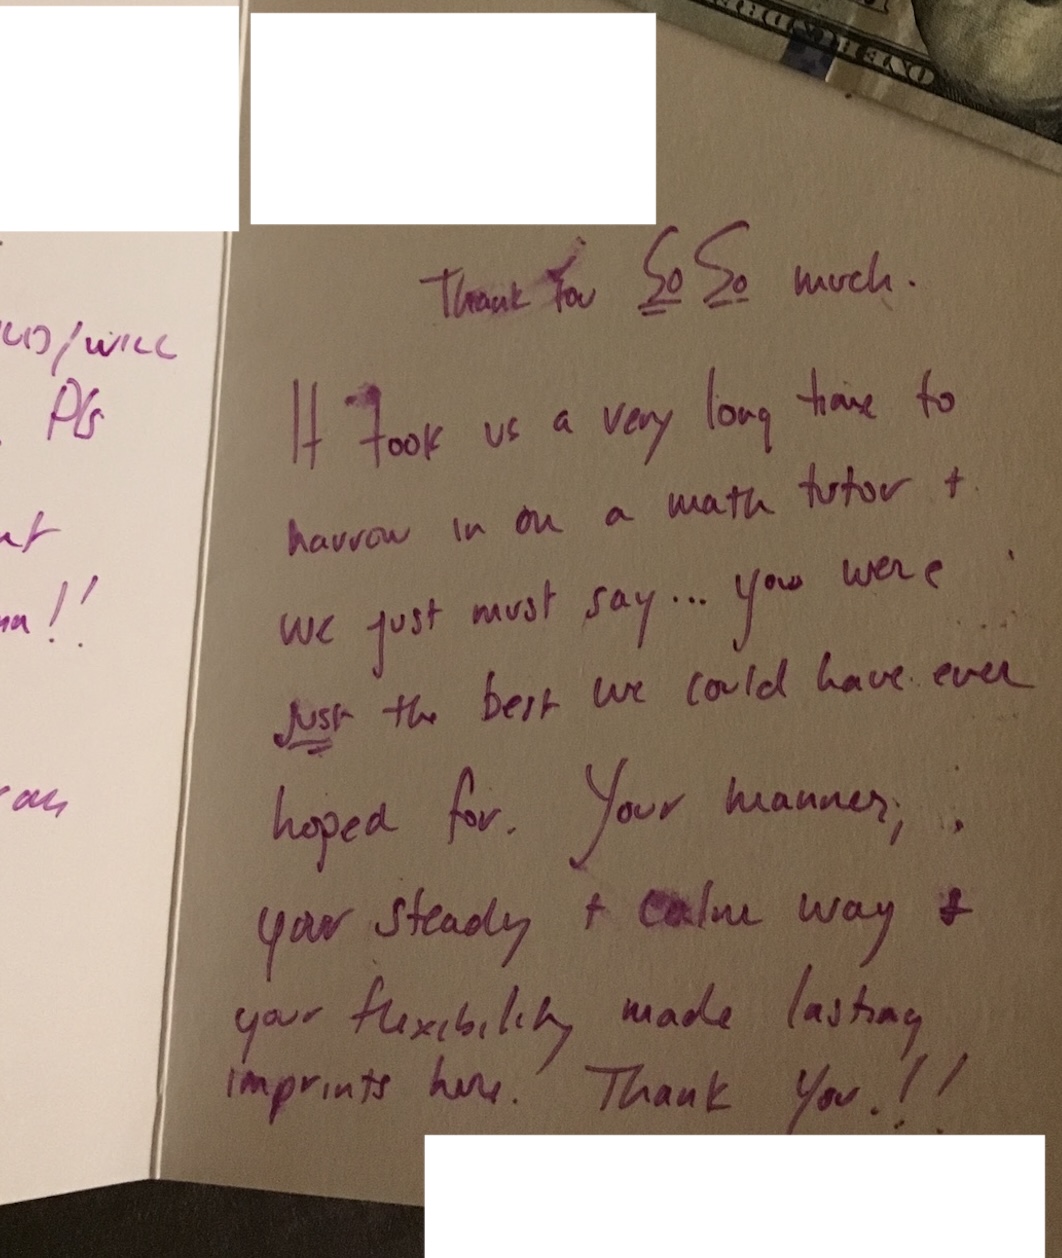 ONE HUNDRED
/WILL
Pls
!!
Thank You So So much.
It Took us a very long time to
narrow in on a math tutor +
we just must say... you were
just the best we could have ever
hoped for. Your manner,
your steady + calm way +
your flexibility made lasting
imprints here. Thank You!!